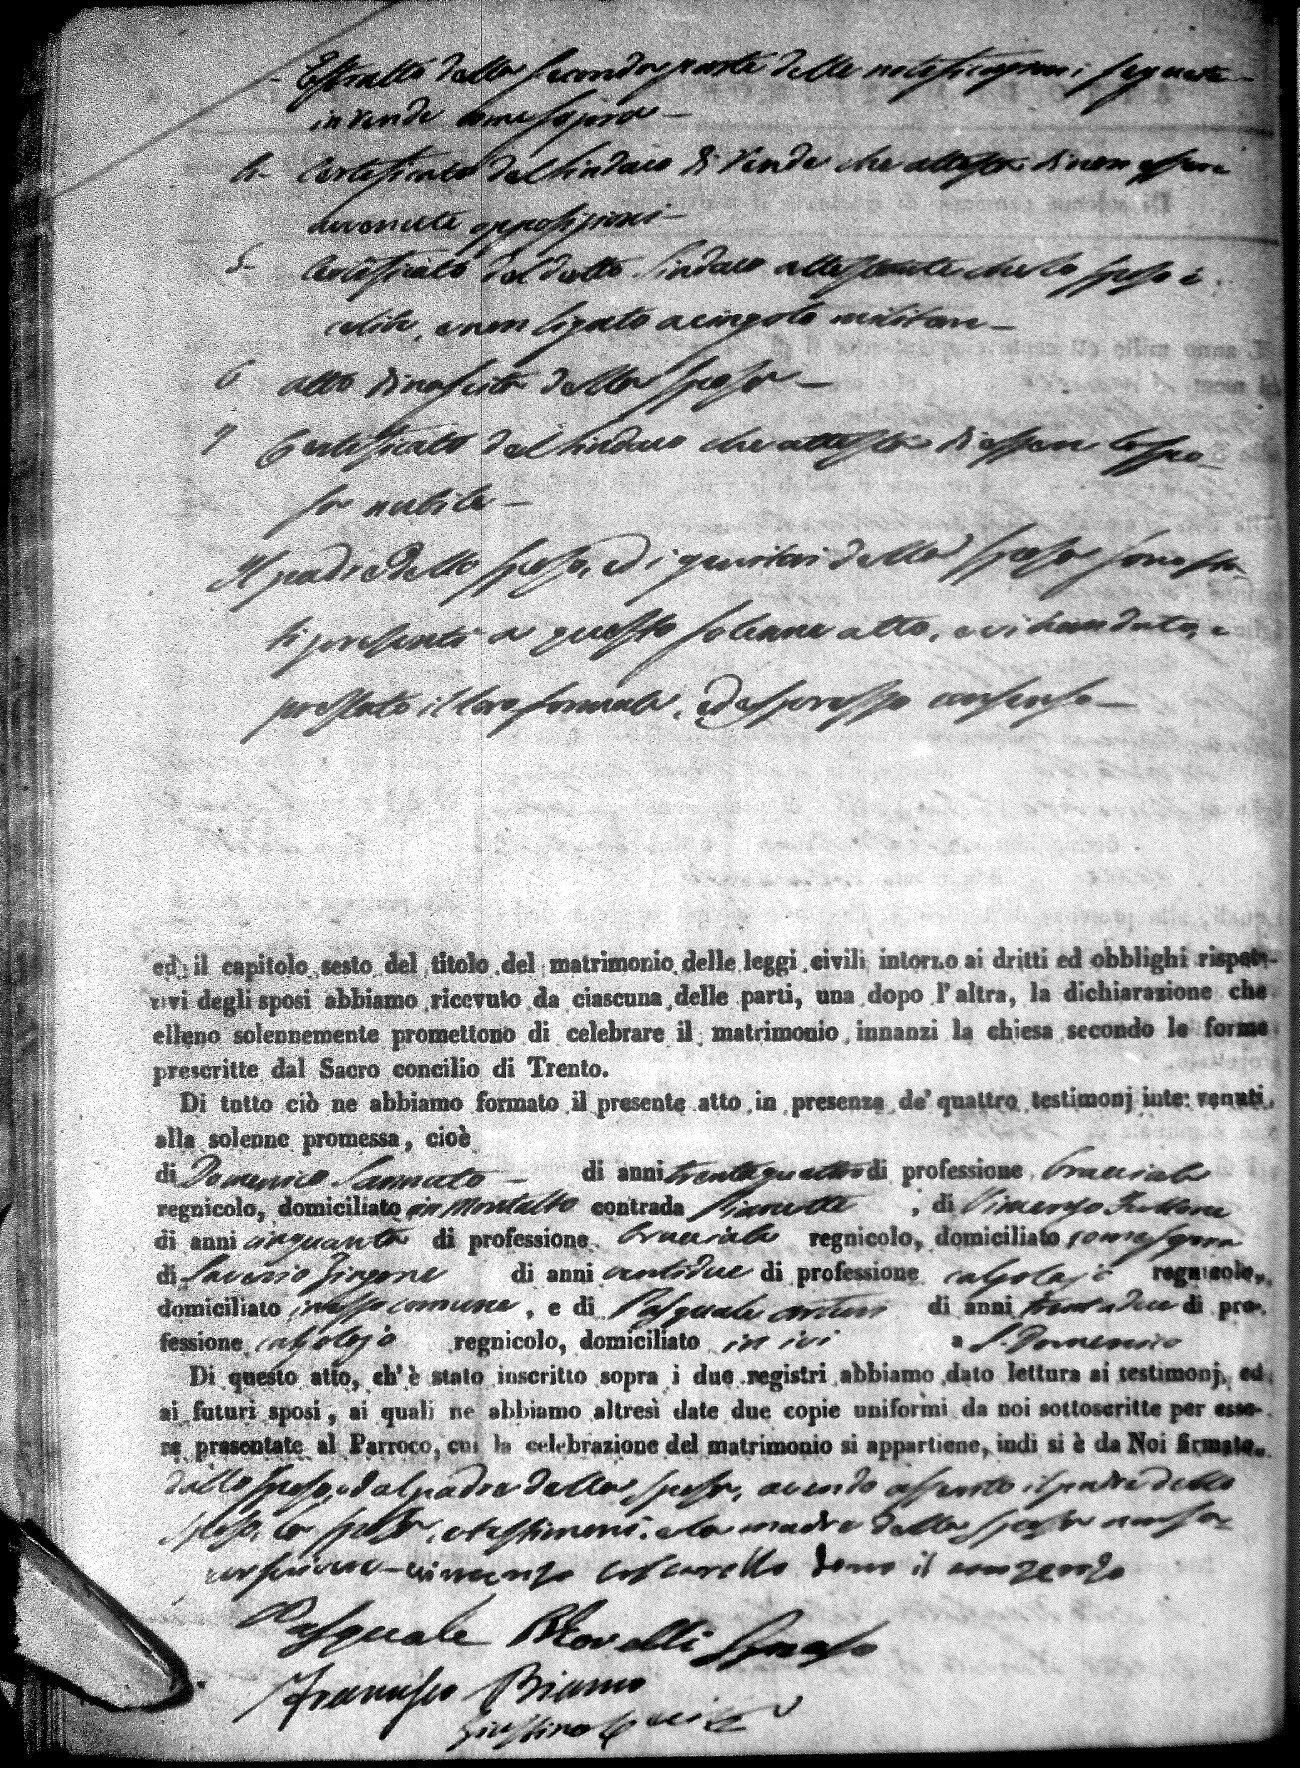 Estratto della seconda parte delle notificazioni seguite
in Rende come sopra —
4- Certificato del Sindaco di Rende che attesta di non essere
avvenute opposizioni —
5- Certificato del detto Sindaco attestante che lo sposo è
celibe, e non ligato a cingolo militare —
6 atto di nascita della sposa —
7 Certificato del Sindaco che attesta di essere la spo-
sa nubile —
Il padre dello sposo, ed i genitori della sposa sono sta-
ti presenti a questo solenne atto, e vi han dato, e
prestato il loro formale, ed espresso consenso —
ed il capitolo sesto del titolo del matrimonio delle leggi civili intorno ai dritti ed obblighi rispet-
tivi degli sposi abbiamo ricevuto da ciascuna delle parti, una dopo l'altra, la dichiarazione che
elleno solennemente promettono di celebrare il matrimonio innanzi la chiesa secondo le forme
prescritte dal Sacro concilio di Trento.
Di tutto ciò ne abbiamo formato il presente atto in presenza de' quattro testimonj intervenuti
alla solenne promessa, cioè
di Domenico Sannuto — di anni trentaquattro di professione bracciale
regnicolo, domiciliato in Montalto contrada Pianette , di Vincenzo
di anni cinquanta di professione bracciale regnicolo, domiciliato come sopra
di Saverio di anni ventidue di professione calzolajo regnicolo,
domiciliato in esso comune , e di Pasquale di anni trentadue di pro-
fessione calzolajo regnicolo, domiciliato in ivi a S. Domenico
Di questo atto, ch'è stato inscritto sopra i due registri abbiamo dato lettura ai testimonj, ed
ai futuri sposi, ai quali ne abbiamo altresì date due copie uniformi da noi sottoscritte per esse-
re presentate al Parroco, cui la celebrazione del matrimonio si appartiene, indi si è da Noi firmato
dallo sposo, e dal padre della sposa, avendo asserito il padre dello
sposo, la sposa, e testimoni, e la madre della sposa non sa-
per scrivere — vincenzo dono il conzenzo
Pasquale sposo
Francesco Bianco